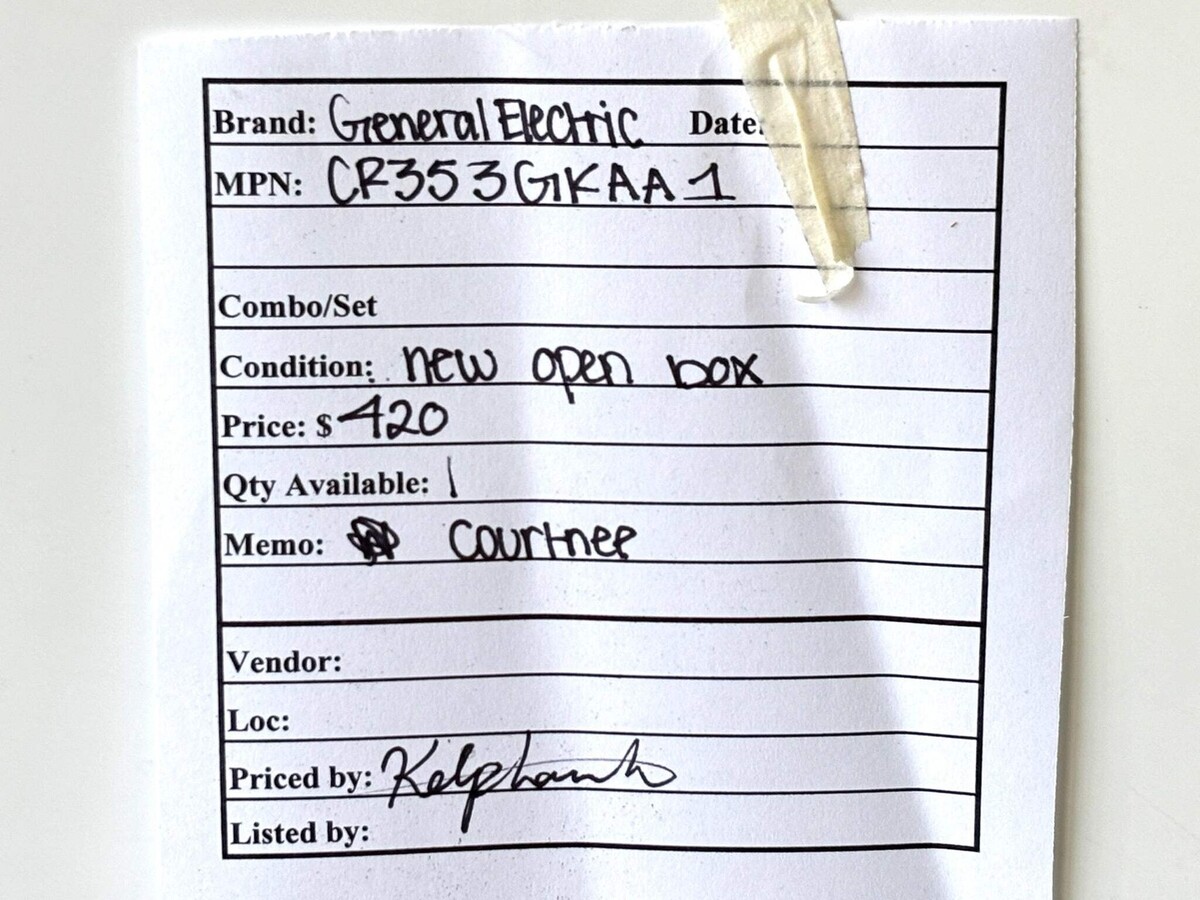 Brand: General Electric Date:
MPN: CR353GKAA1
Combo/Set
Condition: new open box
Price: $ 420
Qty Available: 1
Memo: Courtnee
Vendor:
Loc:
Priced by:
Listed by: